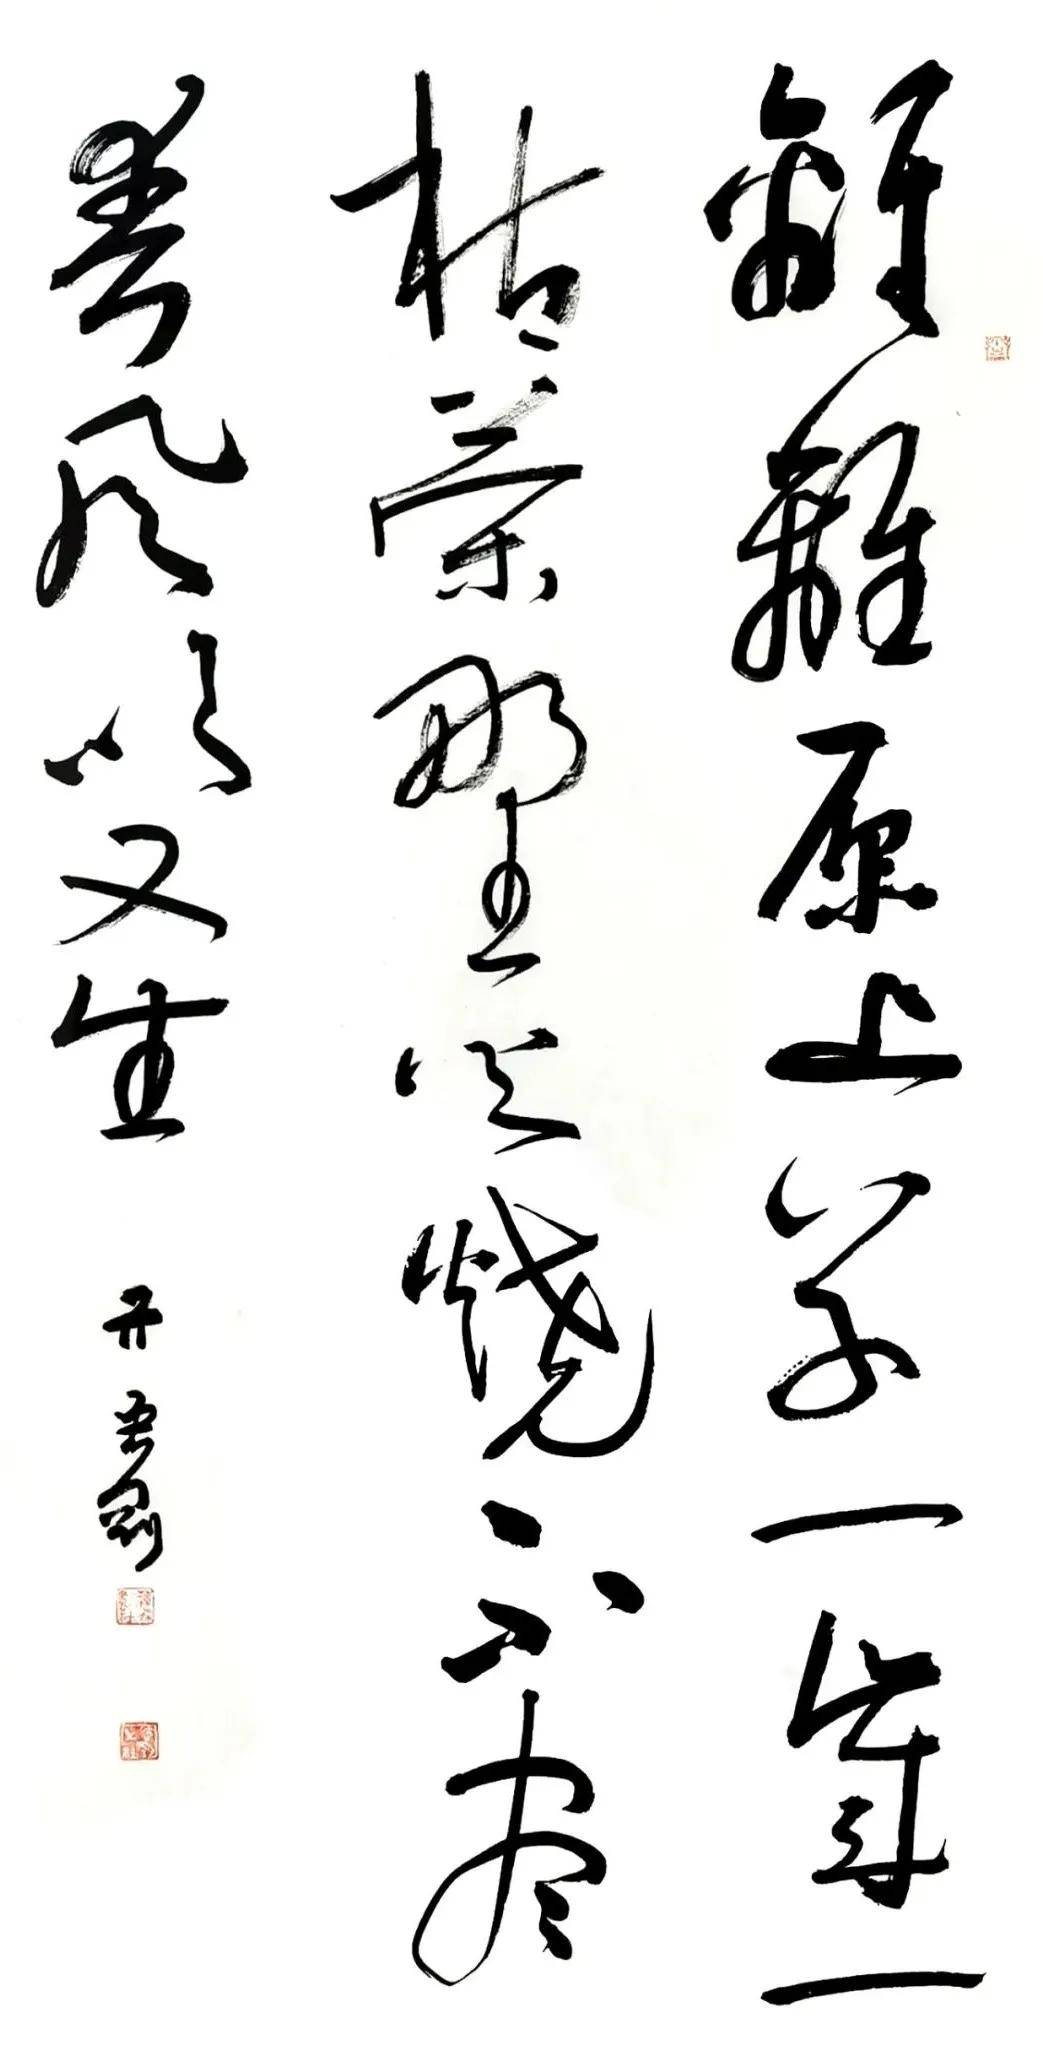 離離原上草一歲一
枯榮野火燒不盡
春風吹又生